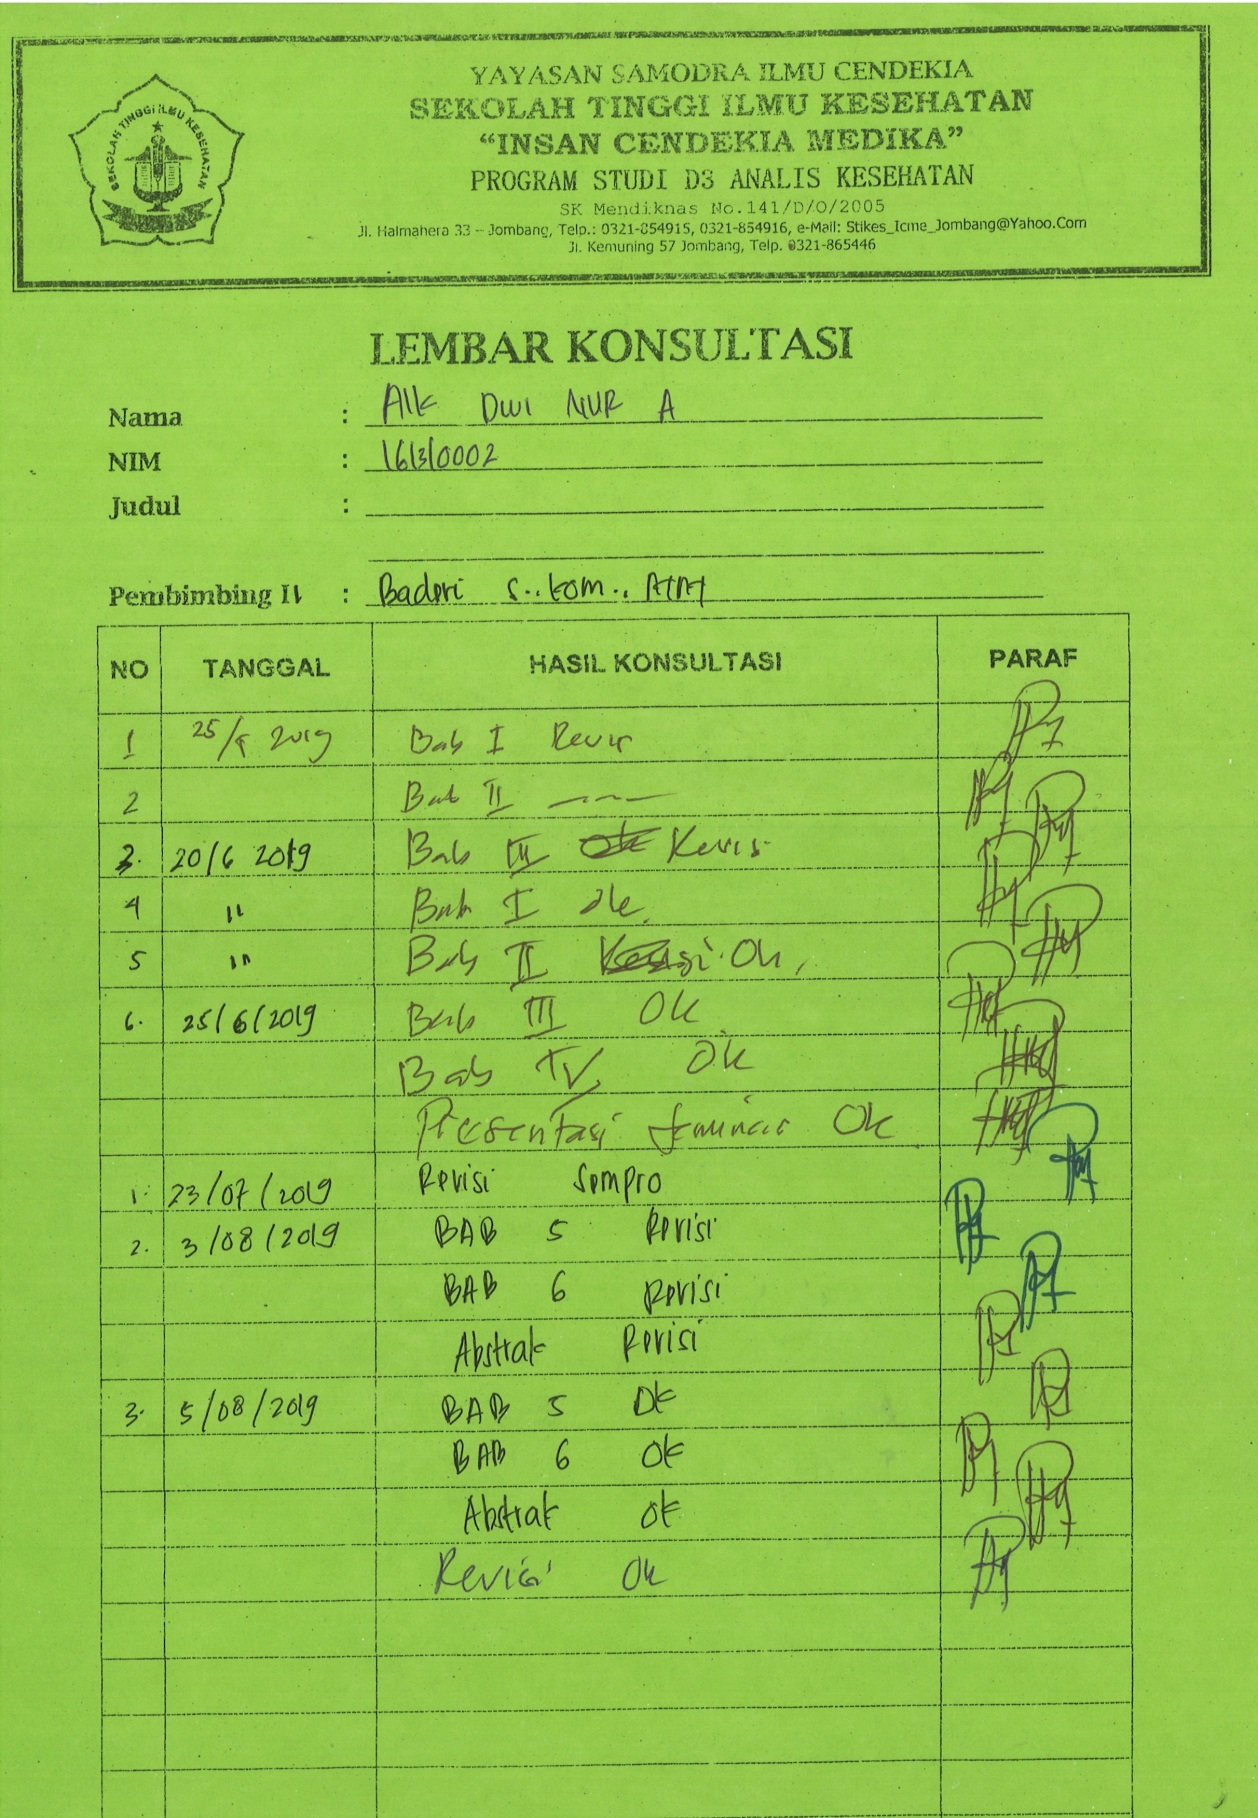 SEKOLAH TINGGI ILMU KESEHATAN
YAYASAN SAMODRA ILMU CENDEKIA
SEKOLAH TINGGI ILMU KESEHATAN
“INSAN CENDEKIA MEDIKA”
PROGRAM STUDI D3 ANALIS KESEHATAN
SK Mendiknas No.141/D/O/2005
Jl. Halmahera 33 – Jombang, Telp.: 0321-854915, 0321-854916, e-Mail: Stikes_Icme_Jombang@Yahoo.Com
Jl. Kemuning 57 Jombang, Telp. 0321-865446
LEMBAR KONSULTASI
Nama : DWI NUR A
NIM : 161310002
Judul :
Pembimbing II : S..kom.,
NO TANGGAL HASIL KONSULTASI PARAF
1 2019 Bab I
2 Bab II
3. 20/6 2019 Bab III
4 " Bab I
5 " Bab II Ok,
6. 25/6/2019 Bab III Ok
Bab IV Ok
Presentasi seminar Ok
1. 23/07/2019 Revisi Sempro
2. 3/08/2019 BAB 5 Revisi
BAB 6 Revisi
Abstrak Revisi
3. 5/08/2019 BAB 5 Ok
BAB 6 Ok
Abstrak Ok
Revisi Ok